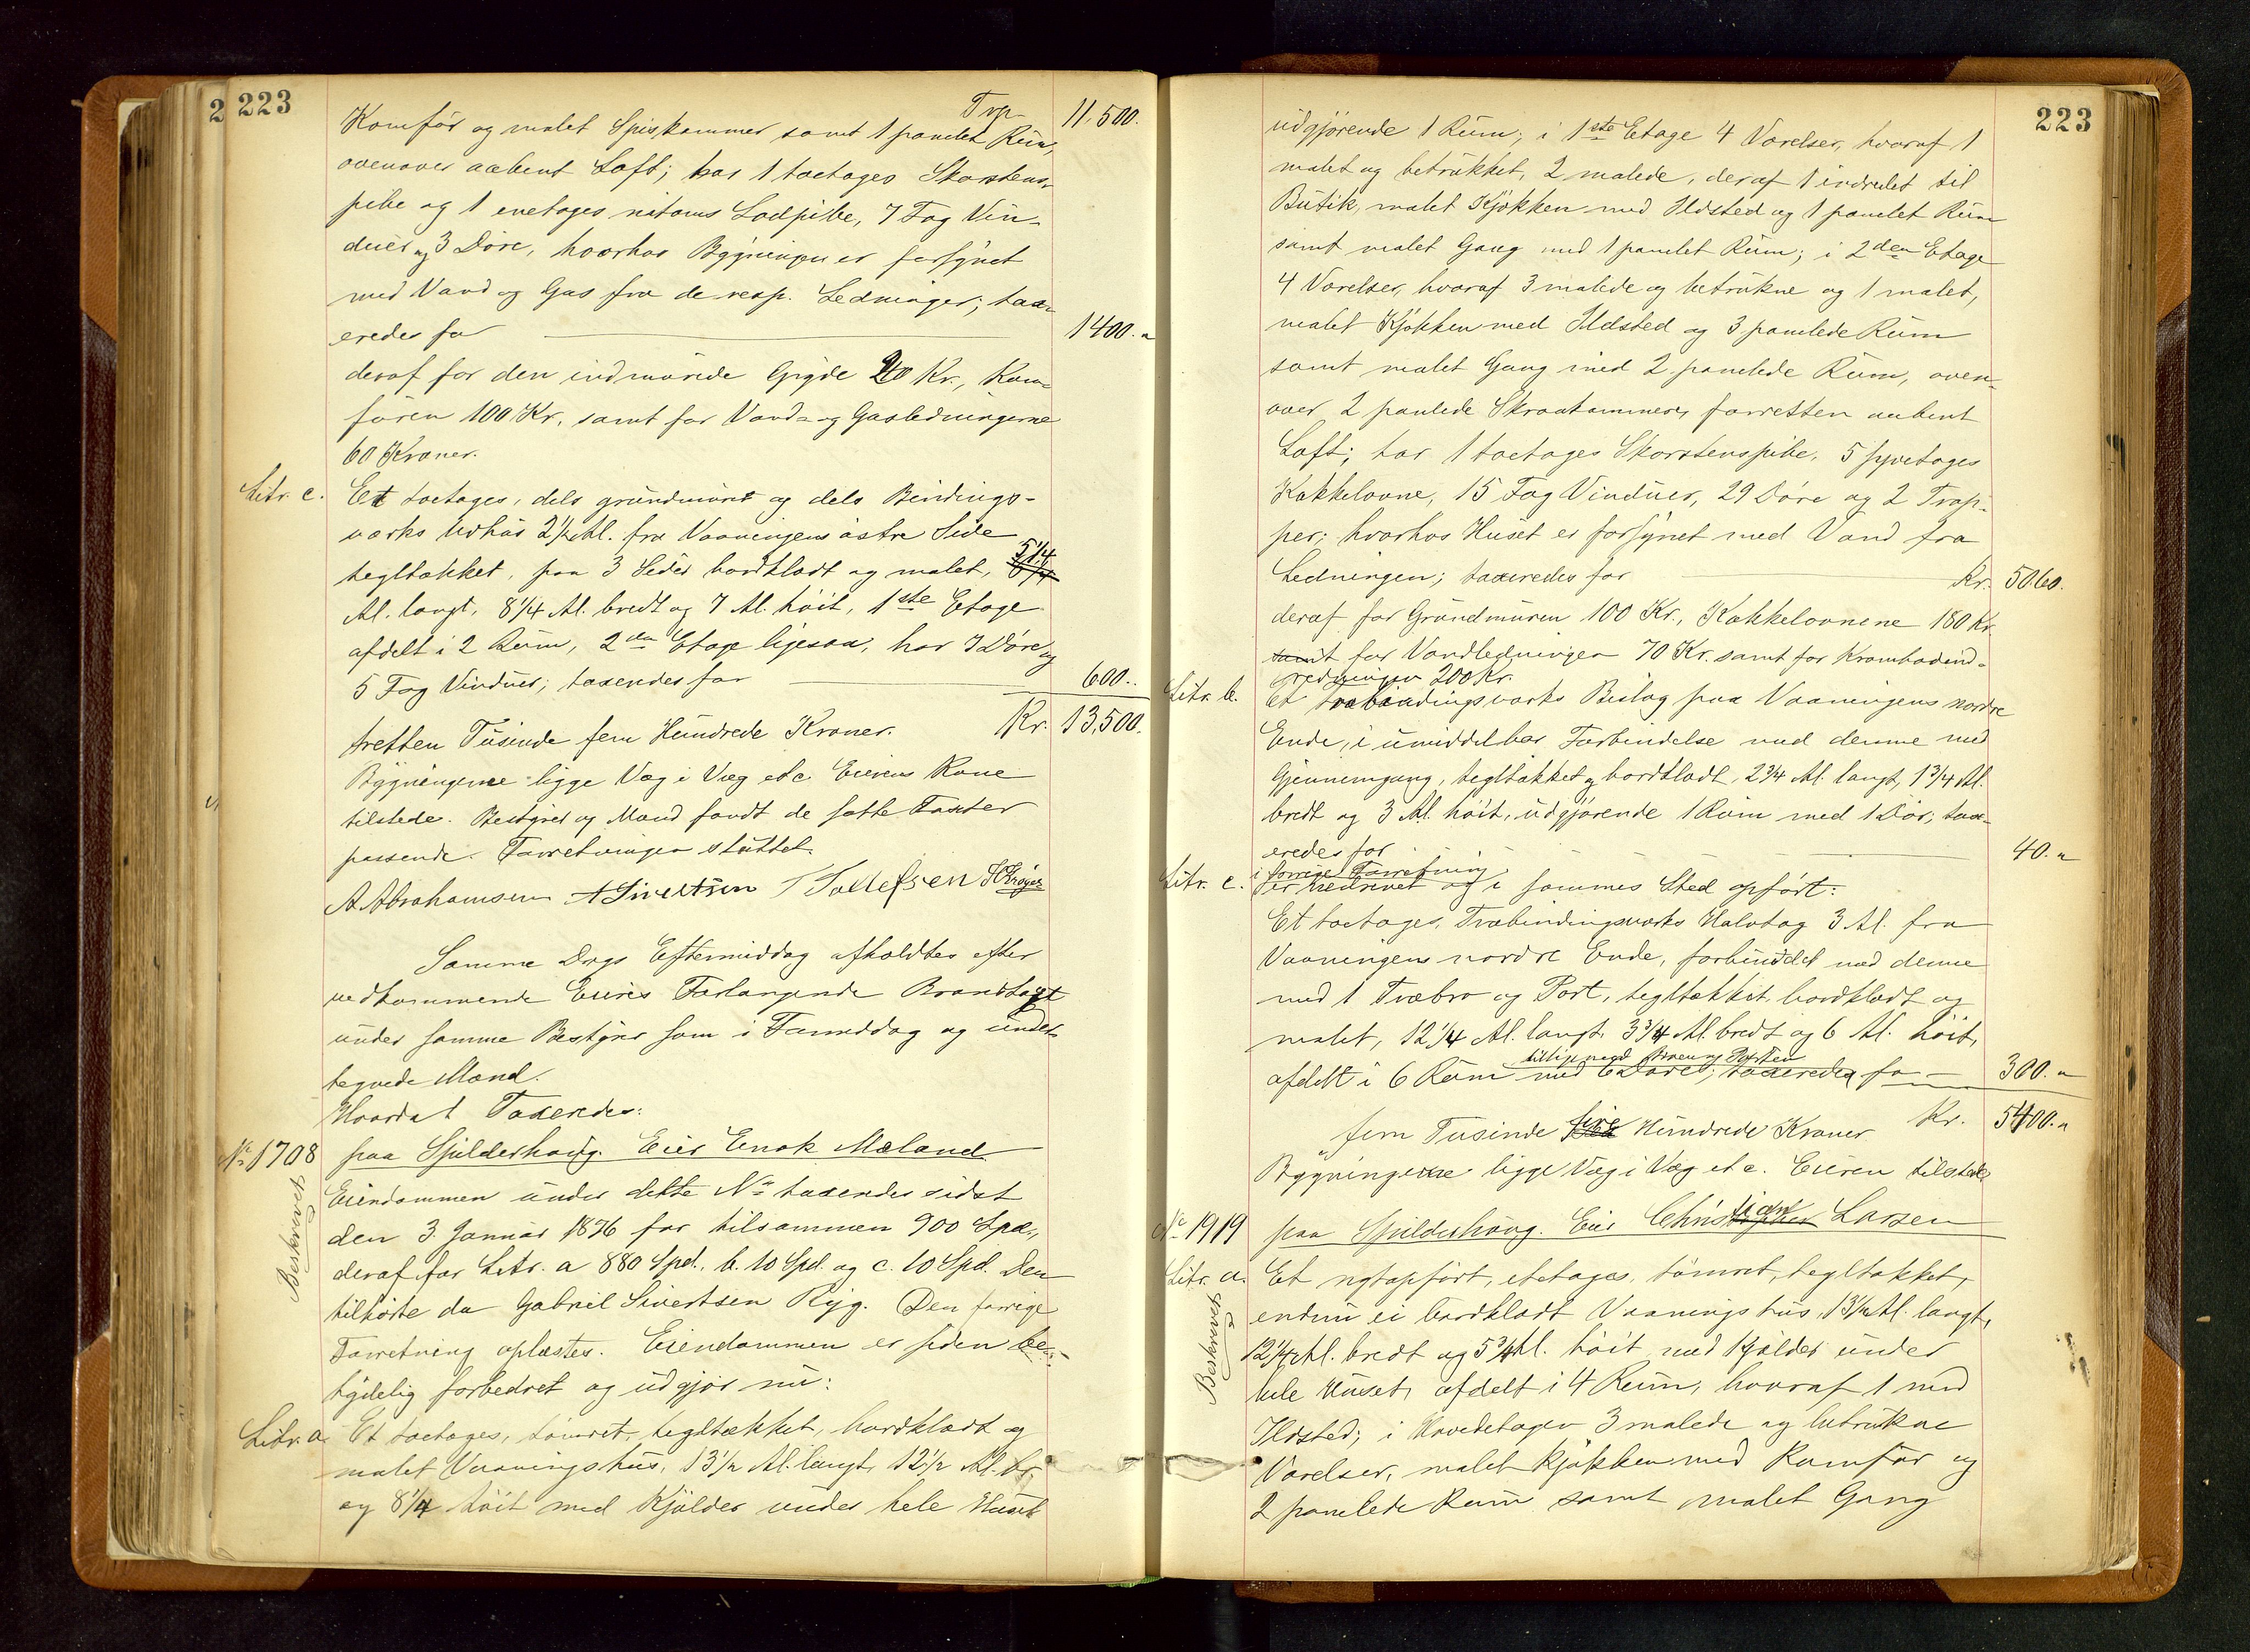 223
Trp. 11,500.
Komfør og malet Spiskammer samt 1 panelet Rum,
ovenover aabent Loft; har 1 toetages Skorstens-
pibe og 1 enetages Lodpibe, 7 Fag Vin-
duer og 3 Døre, hvorhos Bygningen er forsynet
med Vand og Gas fra de resp. Ledninger; tax-
eredes for 1400.
deraf for den indmurede Gryde 20 Kr., Kom-
føren 100 Kr. samt for Vand- og Gasledningerne
60 Kroner.
Litr. c. Et toetages, dels grundmuret og dels Bindings-
værks Udhus 2½ Al. fra Vaaningens østre Side
tegltækket, paa 3 Sider bordklædt og malet, 5 1/4
Al. langt, 8 1/4 Al. bredt og 7 Al. höit, 1ste Etage
afdelt i 2 Rum, 2den Etage ligesaa, har 7 Döre og
5 Fag Vinduer; taxeredes for 600.
tretten Tusinde fem Hundrede Kroner. Kr. 13,500.
Bygningerne ligge Væg i Væg etc. Eierens Kone
tilstede. Bestyrer og Mænd fandt de satte Taxter
passende. Forretningen sluttet.
A Abrahamsen A Sivertsen T Tollefsen
Samme Dags Eftermiddag afholdtes efter
vedkommende Eieres Forlangende Brandtaxt
under samme Bestyrer som i Formiddag og under-
tegnede Mænd.
Hvorda t Taxeredes:
No 1708 paa Spilderhaug. Eier Enok Mæland
Beskrevet
Eiendommen under dette No taxeredes sidst
den 3. Januar 1876 for tilsammen 900 Spd.,
deraf for Litr. a 880 Spd. b. 10 Spd. og c. 10 Spd. Den
tilhørte da Gabriel Sivertsen Ryg. Den forrige
Forretning oplæstes. Eiendommen er siden be-
tydelig forbedret og udgjør nu:
Litr. a. Et toetages, tømret, tegltækket, bordklædt og
malet Vaaningshus, 13½ Al. langt, 12½ Al. br.
og 8 1/4 höit med Kjælder under hele Huset
223
udgjørende 1 Rum; i 1ste Etage 4 Værelser, hvoraf 1
malet og betrukket, 2 malede, deraf 1 indredet til
Butik, malet Kjøkken med Ildsted og 1 panelet Rum
samt malet Gang med 1 panelet Rum; i 2den Etage
4 Værelser, hvoraf 3 malede og betrukne og 1 malet,
malet Kjøkken med Ildsted og 3 panelede Rum
samt malet Gang med 2 panelede Rum, oven-
over 2 panlede Skraakammere, forresten aabent
Loft; har 1 toetages Skorstenspibe, 5 tyvetages
Kakkelovne, 15 Fag Vinduer, 29 Døre og 2 Trap-
per; hvorhos Huset er forsynet med Vand fra
Ledningen; taxeredes for Kr. 5060.
deraf for Grundmuren 100 Kr., Kakkelovnene 180 Kr.
samt for Vandledningen 70 Kr. samt for Krambodind-
redningen 200 Kr.
Litr. b. Et Træbindingsværks Bislag paa Vaaningens nordre
Ende, i umiddelbar Forbindelse med denne med
Gjennemgang, tegltækket og bordklædt, 2 3/4 Al. langt, 1 3/4 Al.
bredt og 3 Al. höit, udgjørende 1 Rum med 1 Dör; tax-
eredes for 40.
Litr. c. i forrige Forretning
er nedrevet og i sammes Sted opført:
Et toetages, Træbindingsværks Halvtag 3 Al. fra
Vaaningens nordre Ende, forbundet med denne
med 1 Træbro og Port, tegltækket, bordklædt og
malet, 12 1/4 Al. langt, 3 3/4 Al. bredt og 6 Al. höit,
afdelt i 6 Rum med 6 Døre; tilligemed Broen og Porten taxeredes for 300.
fem Tusinde fire Hundrede Kroner Kr. 5400.
Bygningerne ligge Væg i Væg etc. Eieren tilstede
No 1919 paa Spilderhaug. Eier Christian Larsen
Beskrevet
Litr. a. Et nyopført, etetages, tømret, tegltækket,
endnu ei bordklædt Vaaningshus, 13½ Al. langt,
12 1/4 Al. bredt og 5 3/4 Al. höit med Kjælder under
hele Huset, afdelt i 4 Rum, hvoraf 1 med
Ildsted; i Hovedetagen 3 malede og betrukne
Værelser, malet Kjøkken med Komfør og
2 panelede Rum samt malet Gang